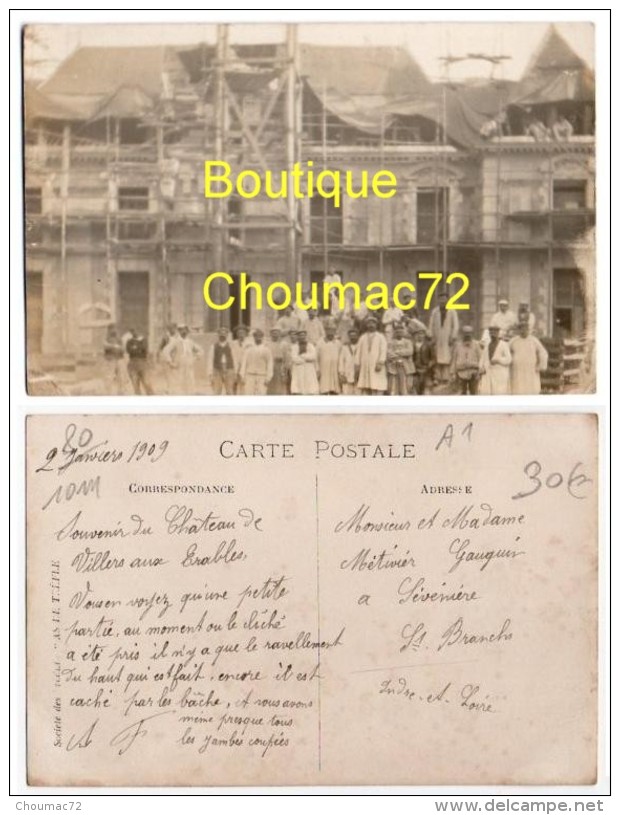 Boutique
Choumac72
80
2 Janviers 1909
10M
CARTE POSTALE
A1
30€
CORRESPONDANCE
ADRESSE
Souvenir du Château de
Villers aux Erables,
Vous en voyez qu'une petite
partie, au moment ou le cliché
a été pris il n'y a que le ravellement
du haut qui est fait, encore il est
caché par les bâche, et vous avons
même presque tous
les jambes coupées
A F
Monsieur et Madame
Métivier Gauguin
a Sévénière
St Branchs
Indre-et-Loire
Société des
Choumac72
http://www.delcampe.net